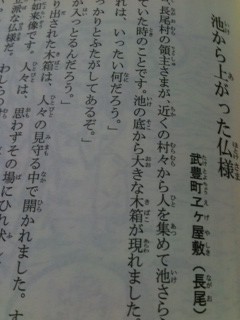 池から上がった仏様
武豊町ヱヶ屋敷（長尾）
、長尾村の領主さまが、近くの村々から人を集めて池さら
ていた時のことです。池の底から大きな木箱が現れました。
れは、いったい何だろう。」
っかりとふたがしてあるぞ。」
が入っとるんだろう。」
り出された木箱は、人々の見守る中で開かれました。す
如来像です。人々は、思わずその場にひれ伏し
派な仏様だ。